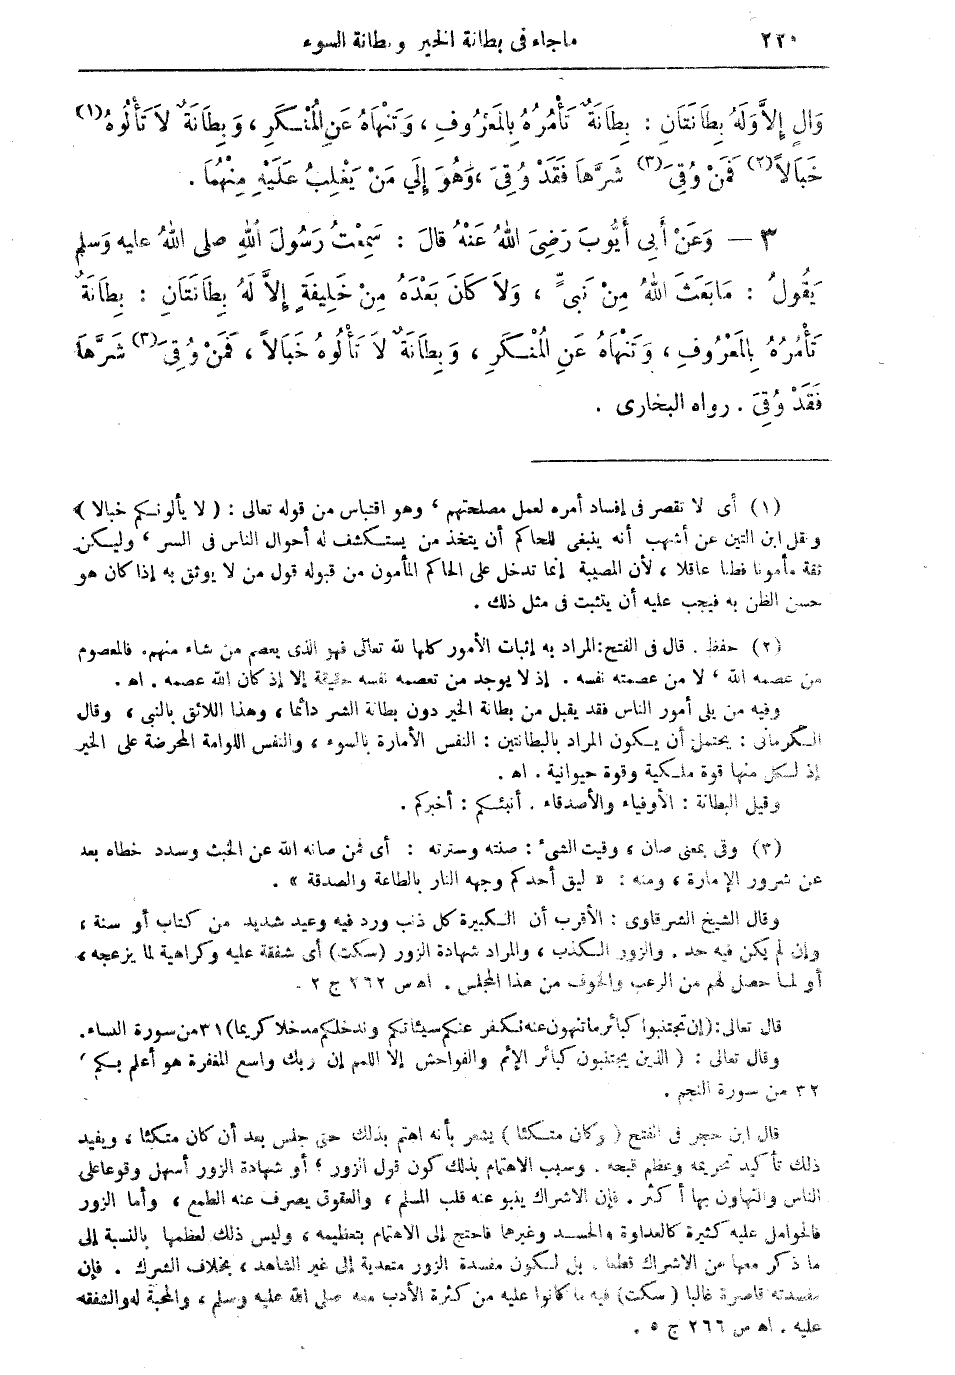 ٢٢٠ ماجاء فى بطانة الخير وبطانة السوء
وَالٍ إِلاَّ وَلَهُ بِطَانَتَانِ : بِطَانَةٌ تَأْمُرُهُ بِالْمَعْرُوفِ ، وَتَنْهَاهُ عَنِ الْمُنْكَرِ ، وَبِطَانَةٌ لاَ تَأْلُوهُ(١)
خَبَالاً(٢) فَمَنْ وُقِىَ(٣) شَرَّهَا فَقَدْ وُقِىَ ، وَهُوَ إِلَي مَنْ يَغْلِبُ عَلَيْهِ مِنْهُمَا .
٣ — وَعَنْ أَبِي أَيُّوبَ رَضِيَ اللهُ عَنْهُ قَالَ : سَمِعْتُ رَسُولَ اللهِ صلى اللهُ عليه وَسلم
يَقُولُ : مَابَعَثَ اللهُ مِنْ نَبِيٍّ ، وَلاَ كَانَ بَعْدَهُ مِنْ خَلِيفَةٍ إِلاَّ لَهُ بِطَانَتَانِ : بِطَانَةٌ
تَأْمُرُهُ بِالْمَعْرُوفِ ، وَتَنْهَاهُ عَنِ الْمُنْكَرِ ، وَبِطَانَةٌ لاَ تَأْلُوهُ خَبَالاً ، فَمَنْ وُقِىَ(٣) شَرَّهَا
فَقَدْ وُقِىَ . رواه البخارى .
(١) أى لا تقصر فى إفساد أمره لعمل مصلحتهم ، وهو اقتباس من قوله تعالى : ( لا يألونكم خبالا )
ونقل ابن التين عن أشهب أنه ينبغى للحاكم أن يتخذ من يستكشف له أحوال الناس فى السر ، وليكن
ثقة مأمونا فطنا عاقلا ، لأن المصيبة إنما تدخل على الحاكم المأمون من قبوله قول من لا يوثق به إذا كان هو
حسن الظن به فيجب عليه أن يتثبت فى مثل ذلك .
(٢) حفظ . قال فى الفتح: المراد به إثبات الأمور كلها لله تعالى فهو الذى يعصم من شاء منهم . فالمعصوم
من عصمه الله ، لا من عصمته نفسه . إذ لا يوجد من تعصمه نفسه حقيقة إلا إذ كان الله عصمه . اه .
وفيه من يلى أمور الناس فقد يقبل من بطانة الخير دون بطانة الشر دائما ، وهذا اللائق بالنبى ، وقال
الكرمانى : يحتمل أن يكون المراد بالبطانتين : النفس الأمارة بالسوء ، والنفس اللوامة المحرضة على الخير
إذ لكل منها قوة ملكية وقوة حيوانية . اه .
وقيل البطانة : الأوفياء والأصدقاء . أنبئكم : أخبركم .
(٣) وقى بمعنى صان ، وقيت الشىء : صنته وسترته : أى فمن صانه الله عن الخبث وسدد خطاه بعد
عن شرور الإمارة ، ومنه : « ليق أحدكم وجهه النار بالطاعة والصدقة » .
وقال الشيخ الشرقاوى : الأقرب أن الكبيرة كل ذنب ورد فيه وعيد شديد من كتاب أو سنة ،
وإن لم يكن فيه حد . والزور الكذب ، والمراد شهادة الزور (سكت) أى شفقة عليه وكراهية لما يزعجه ،
أو لما حصل لهم من الرعب والخوف من هذا المجلس . اه ص ٢٦٢ ج ٢ .
قال تعالى : (إن تجتنبوا كبائر ماتنهون عنه نكفر عنكم سيئاتكم وندخلكم مدخلا كريما) ٣١ من سورة النساء.
وقال تعالى : ( الذين يجتنبون كبائر الإثم والفواحش إلا اللمم إن ربك واسع المغفرة هو أعلم بكم )
٣٢ من سورة النجم .
قال ابن حجر فى الفتح ( وكان متكئا ) يشعر بأنه اهتم بذلك حتى جلس بعد أن كان متكئا ، ويفيد
ذلك تأكيد تحريمه وعظم قبحه . وسبب الاهتمام بذلك كون قول الزور ، أو شهادة الزور أسهل وقوعا على
الناس والتهاون بها أكثر . فإن الاشراك ينبو عنه قلب المسلم ، والعقوق يصرف عنه الطبع ، وأما الزور
فالحوامل عليه كثيرة كالعداوة والحسد وغيرهما فاحتج إلى الاهتمام بتعظيمه ، وليس ذلك لعظمها بالنسبة إلى
ما ذكر معها من الاشراك قطعا . بل لكون مفسدة الزور متعدية إلى غير الشاهد ، بخلاف الشرك . فإن
مفسدته قاصرة غالبا (سكت) فيه ما كانوا عليه من كثرة الأدب معه صلى الله عليه وسلم ، والمحبة له والشفقه
عليه . اه ص ٢٦٦ ج ٥ .